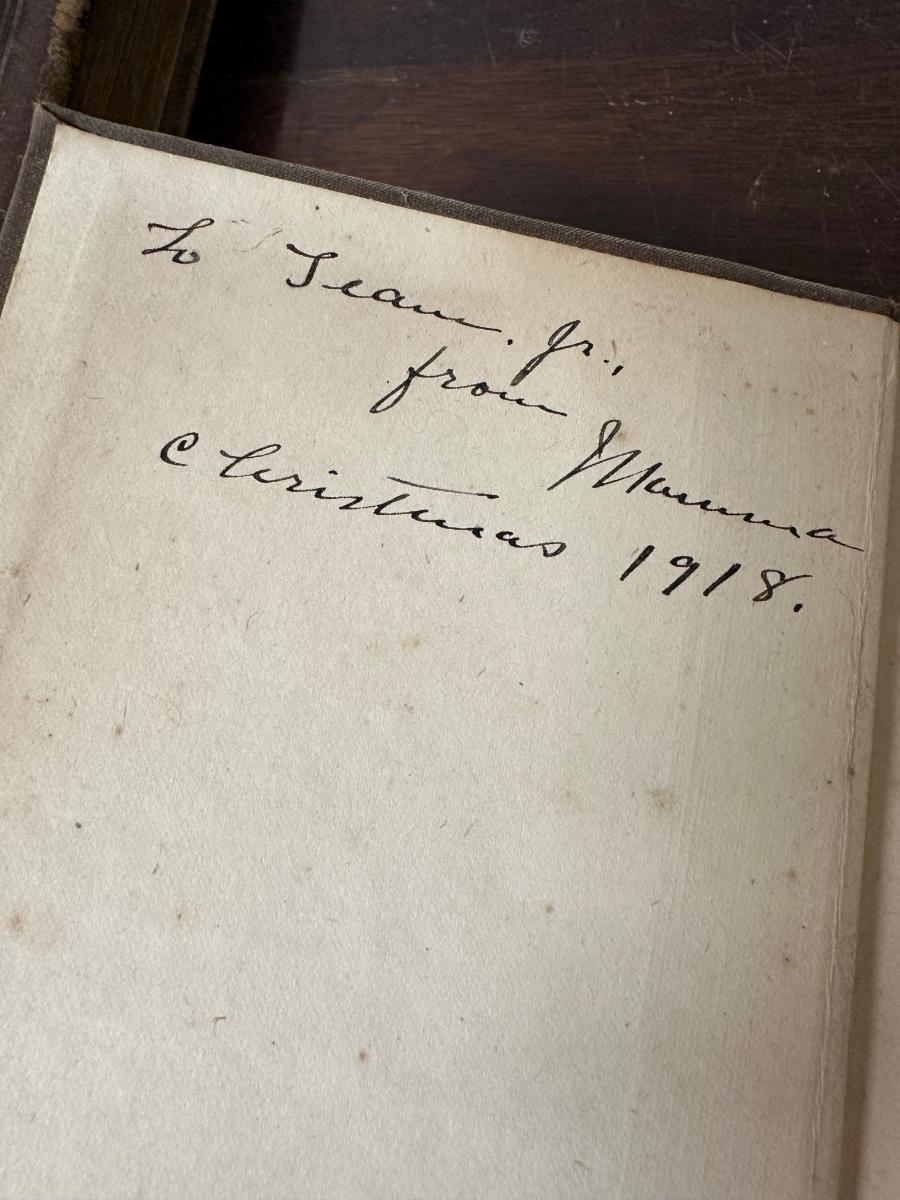 To Jr.,
from Mamma
Christmas 1918.